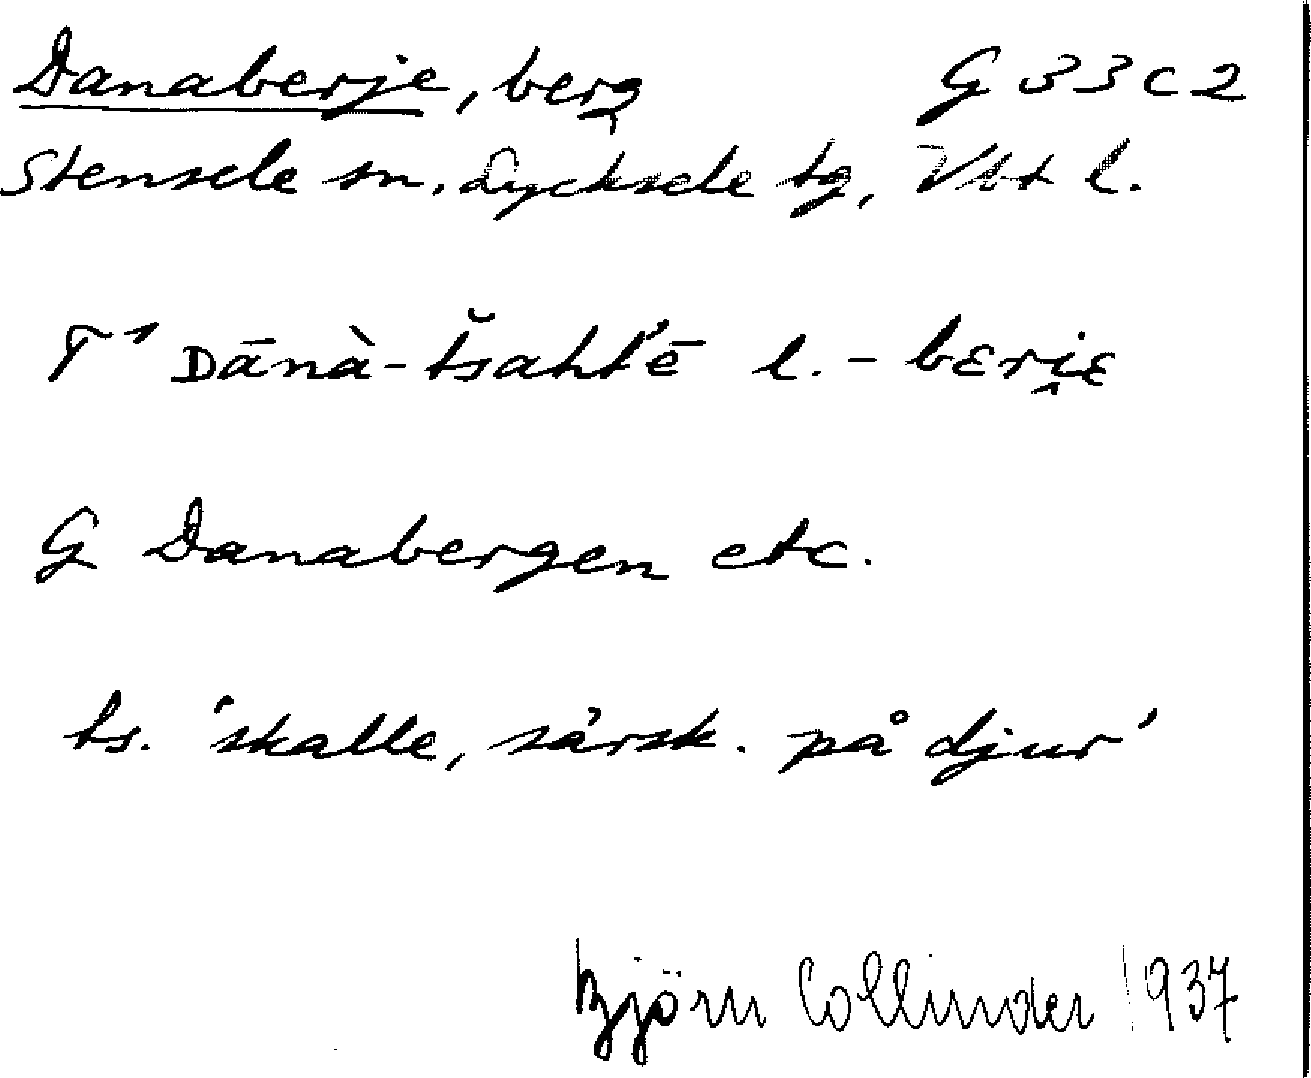 Danaberje, berg G 33 C 2
Stensele sn. Lycksele tg, Vbt l.
T¹ Dānà-tšaht́ē l. - bɛri̯ɛ
G Danabergen etc.
ts. 'skalle, särsk. på djur'
Björn Collinder 1937